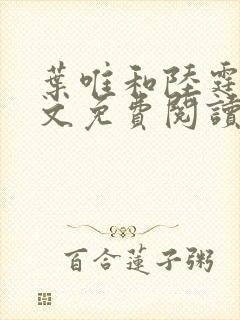 葉唯和陸霆
文免費閱讀
百合蓮子粥